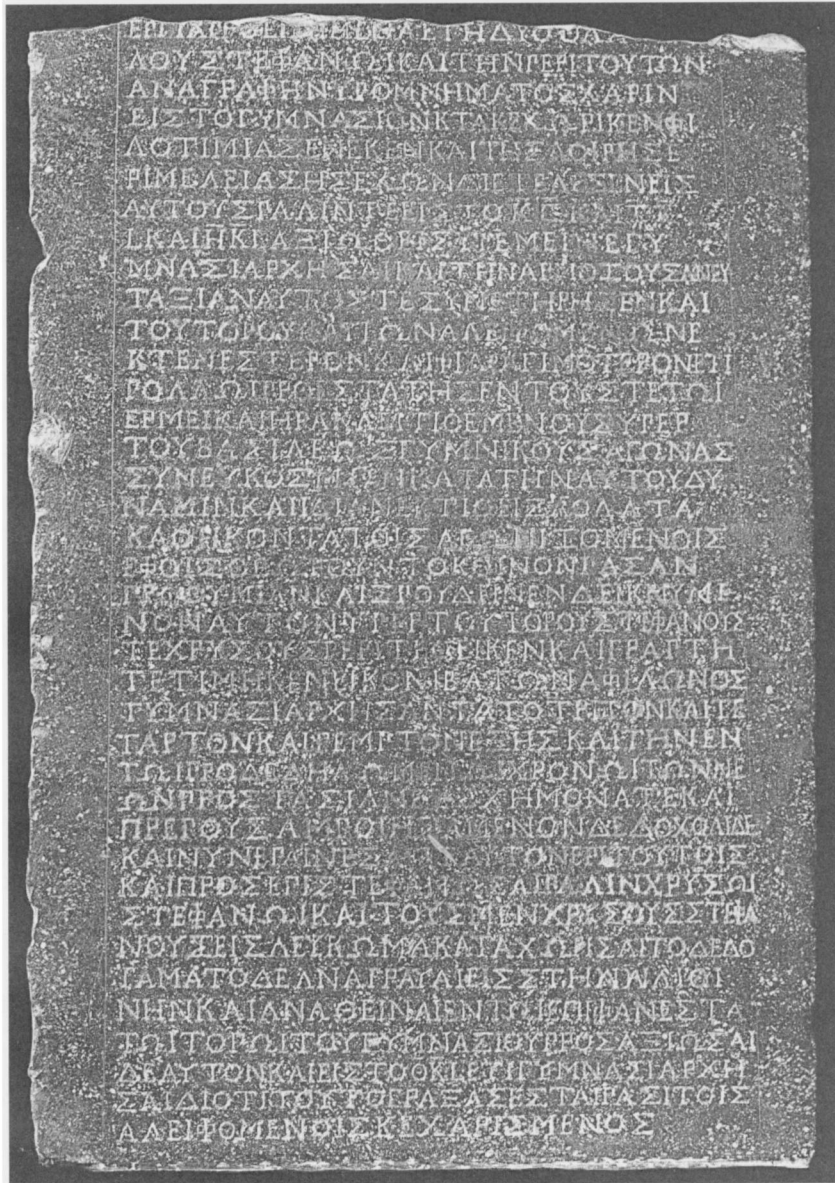 ΛΟΥΣΤΕΦΑΝΩΙΚΑΙΤΗΝΠΕΡΙΤΟΥΤΩΝ
ΑΝΑΓΡΑΦΗΝΥΠΟΜΝΗΜΑΤΟΣΧΑΡΙΝ
ΕΙΣΤΟΓΥΜΝΑΣΙΟΝΚΤΑΚΕΧΩΡΙΚΕΝΦΙ
ΛΟΤΙΜΙΑΣΕΝΕΚΕΝΚΑΙΤΗΣΛΟΙΠΗΣΕ
ΠΙΜΕΛΕΙΑΣΗΣΕΧΩΝΔΙΕΤΕΛΕΣΕΝΕΙΣ
ΑΥΤΟΥΣΠΑΛΙΝΤΕΕΙΣΤΟΚΖ
ΜΝΑΣΙΑΡΧΗΣΑΙΚΑΙΤΗΝ
ΤΑΞΙΑΝΑΥΤΟΙΣΤΕΣΥΝΕΤΗΡΗΣΕΝΚΑΙ
ΤΟΥΤΟΠΟΥΚΑΙΤΩΝΑΛΕΙΦΟΜΕΝΩΝΕ
ΚΤΕΝΕΣΤΕΡΟΝΚΑΙΦΙΛΟΤΙΜΟΤΕΡΟΝΕΠΙ
ΠΟΛΛΩΙΠΡΟΕΣΤΑΤΗΣΕΝΤΟΥΣΤΕΤΩΙ
ΕΡΜΕΙΚΑΙΗΡΑΚΛΕΙΤΙΘΕΜΕΝΟΥΣΥΠΕΡ
ΤΟΥΒΑΣΙΛΕΩΣΓΥΜΝΙΚΟΥΣΑΓΩΝΑΣ
ΣΥΝΕΥΚΟΣΜΩΝΚΑΤΑΤΗΝΑΥΤΟΥΔΥ
ΝΑΜΙΝΚΑΙΔΙΟΝΕΤΙΘΕΙΣ
ΚΑΘΗΚΟΝΤΑΤΟΙΣΑΛΕΙΦΟΜΕΝΟΙΣ
ΕΦΟΙΣΟΥ
ΠΡΟΘΥΜΙΑΝΚΑΙΣΠΟΥΔΗΝΕΝΔΕΙΚΝΥΜΕ
ΝΟΝΑΥΤΟΝΥΠΕΡΤΟΥΤΟΠΟΥΣΤΕΦΑΝΟΥΣ
ΤΕΧΡΥΣΟΥΣΕΠΙΤΕΘΕΙΚΕΝΚΑΙΓΡΑΠΤΗ
ΤΕΤΙΜΗΚΕΝΕΙΚΟΝΙΒΑΤΩΝΑΦΙΛΩΝΟΣ
ΓΥΜΝΑΣΙΑΡΧΗΣΑΝΤΑΤΟΤΡΙΤΟΝΚΑΙΤΕ
ΤΑΡΤΟΝΚΑΙΠΕΜΠΤΟΝΕΞΗΣΚΑΙΤΗΝΕΝ
ΤΩΙΠΡΟΔΕΔΗΛΩΜΕΝΩΙΧΡΟΝΩΙΤΩΝΝΕ
ΩΝΠΡΟΣΤΑΣΙΑΝΕΥΣΧΗΜΟΝΑΤΕΚΑΙ
ΠΡΕΠΟΥΣΑΝΠΟΙΗΣΑΜΕΝΟΝΔΕΔΟΧΘΑΙΔΕ
ΚΑΙΝΥΝΕΠΑΙΝΕΣΑΙΤΕΑΥΤΟΝΕΠΙΤΟΥΤΟΙΣ
ΚΑΙΠΡΟΣΕΠΙΣΤΕΦΑΝΩΣΑΙΠΑΛΙΝΧΡΥΣΩΙ
ΣΤΕΦΑΝΩΙΚΑΙΤΟΥΣΜΕΝΧΡΥΣΟΥΣΣΤΕΦΑ
ΝΟΥΣΕΙΣΛΕΥΚΩΜΑΚΑΤΑΧΩΡΙΣΑΙΤΟΔΕΔΟ
ΓΑΜΑΤΟΔΕΑΝΑΓΡΑΨΑΙΕΙΣΣΤΗΛΗΝΛΙΘΙ
ΝΗΝΚΑΙΑΝΑΘΕΙΝΑΙΕΝΤΩΙΕΠΙΦΑΝΕΣΤΑ
ΤΩΙΤΟΠΩΙΤΟΥΓΥΜΝΑΣΙΟΥΠΡΟΣΑΞΙΩΣΑΙ
ΔΕΑΥΤΟΝΚΑΙΕΙΣΤΟΘΚΙΕΤΙΓΥΜΝΑΣΙΑΡΧΗ
ΣΑΙΔΙΟΤΙΤΟΥΤΟΠΡΑΞΑΣΕΣΤΑΙΠΑΣΙΤΟΙΣ
ΑΛΕΙΦΟΜΕΝΟΙΣΚΕΧΑΡΙΣΜΕΝΟΣ